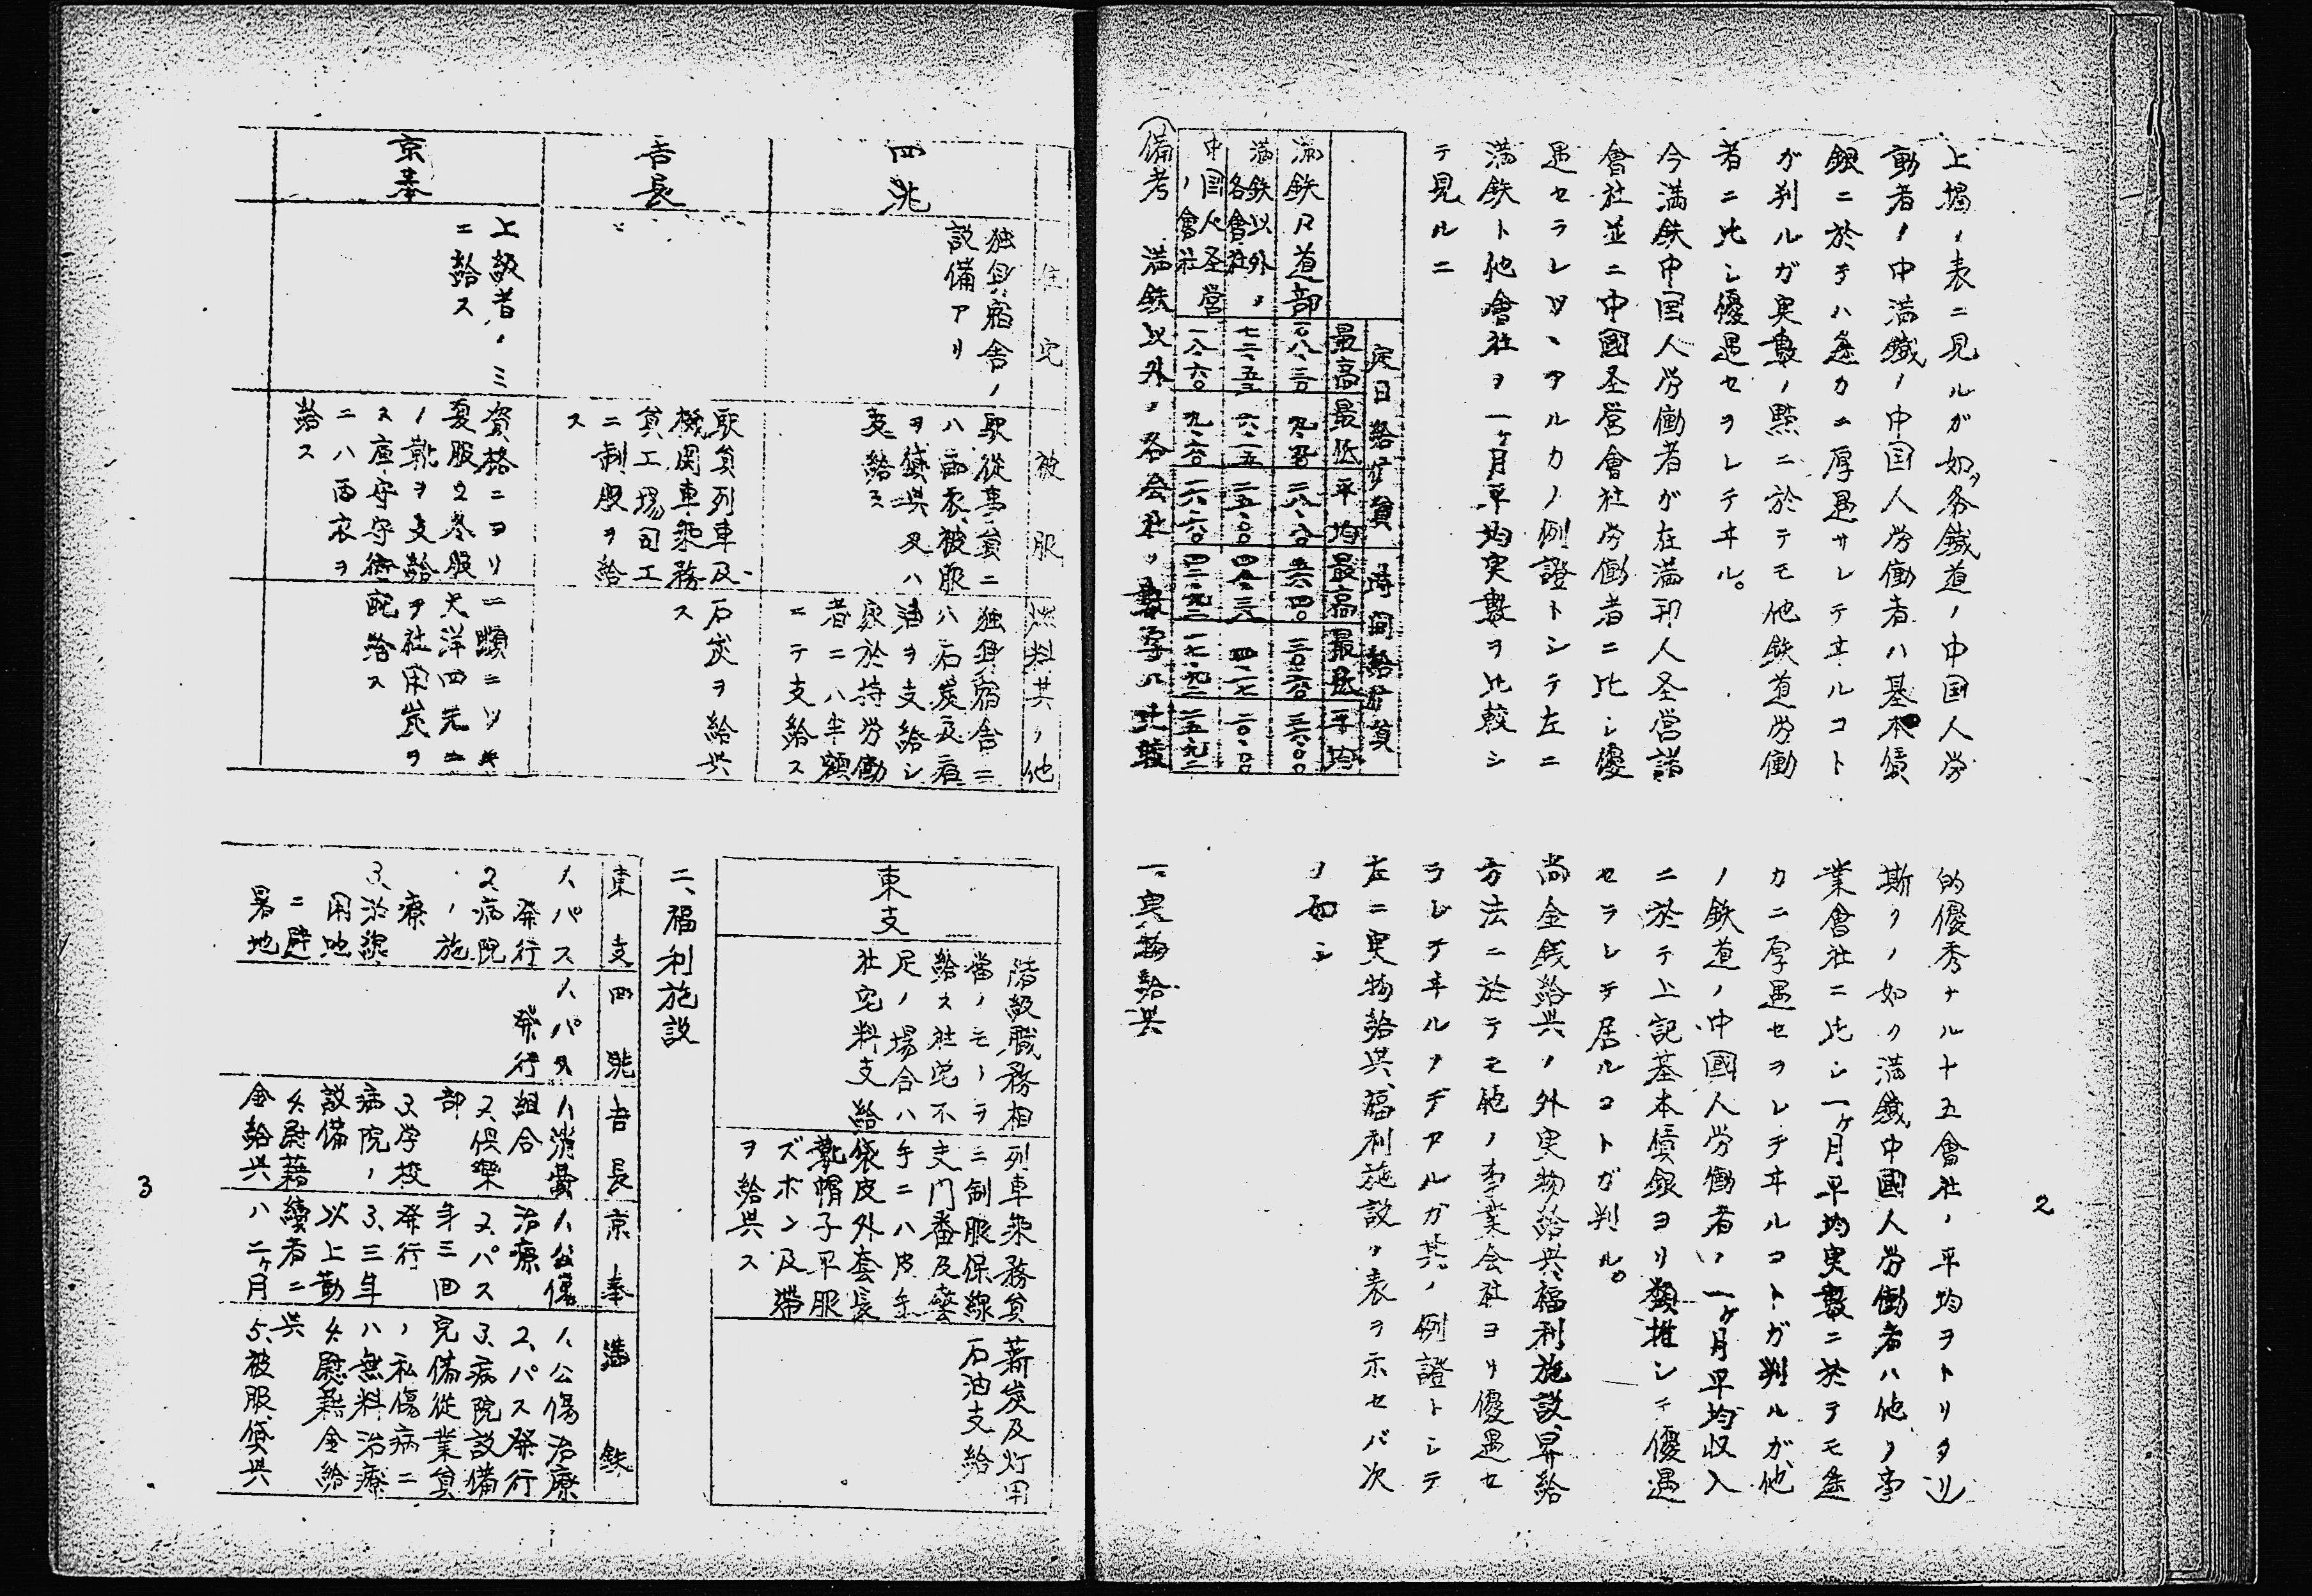 上掲ノ表ニ見ルガ如ク各鐵道ノ中国人労
働者ノ中満鐵ノ中国人労働者ハ基本賃
銀ニ於テハ遙カニ厚遇サレテヰルコト
ガ判ルガ実数ノ點ニ於テモ他鉄道労働
者ニ比シ優遇セラレテヰル。
今満鉄中国人労働者が在満邦人経営諸
會社並ニ中國経営會社労働者ニ比シ優
遇セラレツヽアルカノ例證トシテ左ニ
満鉄ト他會社ヲ一ヶ月平均実数ヲ比較シ
テ見ルニ
定日給傭員 時间給傭員
最高 最低 平均 最高 最低 平均
満鉄 道部
満鉄以外ノ各會社
中国人経営ノ會社
備考 満鉄以外ノ各会社ノ数字ハ比較
的優秀ナル十五會社ノ平均ヲトリタリ
斯クノ如ク満鐵中國人労働者ハ他ノ事
業會社ニ比シ一ヶ月平均実数ニ於テモ遙
カニ厚遇セラレテヰルコトガ判ルガ他
ノ鉄道ノ中國人労働者ハ一ヶ月平均収入
ニ於テ上記基本賃銀ヨリ類推シテ優遇
セラレテ居ルコトガ判ル。
尚金銭給与ノ外実物給与、福利施設、昇給
方法ニ於テモ他ノ事業会社ヨリ優遇セ
ラレテヰルノデアルガ其ノ例證トシテ
左ニ実物給与、福利施設ノ表ヲ示セバ次
ノ如シ
一、実物給与
2
住宅 被服 燃料其ノ他
四洮
独身宿舎ノ
設備アリ
駅從事員ニ
ハ雨衣、被服
ヲ貸与又ハ
支給ス
独身宿舎ニ
ハ石炭及石
油ヲ支給シ
家族持労働
者ニハ半額
ニテ支給ス
吉長
駅員列車及
機関車乗務
員工場司工
ニ制服ヲ給
ス
石炭ヲ給与
ス
京奉
上級者ノミ
ニ給ス
資格ニヨリ
夏服2冬服
ノ靴ヲ支給
ス庫守守衛
ニハ雨衣ヲ
給ス
一噸ニツキ
大洋四元ニ
テ社用炭ヲ
配給ス
東支
階級職務相
當ノモノヲ
給ス社宅不
足ノ場合ハ
社宅料支給
列車乗務員
ニ制服保線
支门番及警
手ニハ皮手
袋皮外套長
靴帽子平服
ズボン及帶
ヲ給与ス
薪炭及灯用
石油支給
二、福利施設
東支
1、パス
発行
2、病院
ノ施
療
3、沿線
用地
ニ避
暑地
四洮
1、パス
発行
吉長
1、消費
組合
2、倶樂
部
3、学校
病院ノ
設備
4、慰藉
金給与
京奉
1、公傷
治療
2、パス
年三回
発行
3、三年
以上勤
續者ニ
ハ二ヶ月
満鉄
1、公傷治療
2、パス発行
3、病院設備
完備從業員
ノ私傷病ニ
ハ無料治療
4、慰藉金給
与
5、被服貸与
3